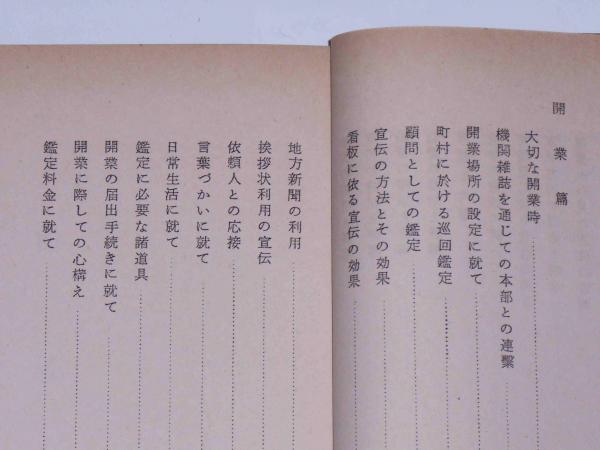 開業篇
大切な開業時
機関雑誌を通じての本部との連繫
開業場所の設定に就て
町村に於ける巡回鑑定
顧問としての鑑定
宣伝の方法とその効果
看板に依る宣伝の効果
地方新聞の利用
挨拶状利用の宣伝
依頼人との応接
言葉づかいに就て
日常生活に就て
鑑定に必要な諸道具
開業の届出手続きに就て
開業に際しての心構え
鑑定料金に就て